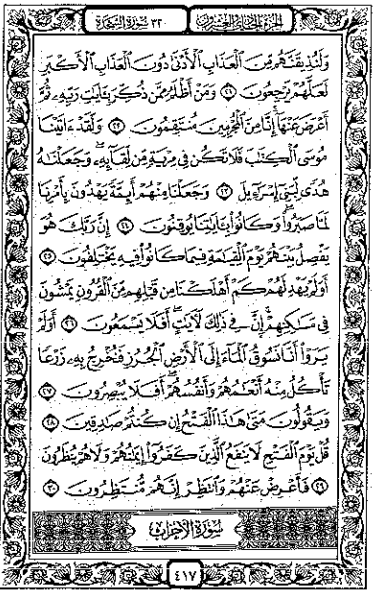 الجزء الحادي والعشرون ٣٢ سورة السجدة
وَلَنُذِيقَنَّهُم مِّنَ ٱلْعَذَابِ ٱلْأَدْنَىٰ دُونَ ٱلْعَذَابِ ٱلْأَكْبَرِ
لَعَلَّهُمْ يَرْجِعُونَ ٢١ وَمَنْ أَظْلَمُ مِمَّن ذُكِّرَ بِـَٔايَٰتِ رَبِّهِۦ ثُمَّ
أَعْرَضَ عَنْهَآ إِنَّا مِنَ ٱلْمُجْرِمِينَ مُنتَقِمُونَ ٢٢ وَلَقَدْ ءَاتَيْنَا
مُوسَى ٱلْكِتَٰبَ فَلَا تَكُن فِى مِرْيَةٍ مِّن لِّقَآئِهِۦ وَجَعَلْنَٰهُ
هُدًى لِّبَنِىٓ إِسْرَٰٓءِيلَ ٢٣ وَجَعَلْنَا مِنْهُمْ أَئِمَّةً يَهْدُونَ بِأَمْرِنَا
لَمَّا صَبَرُوا۟ وَكَانُوا۟ بِـَٔايَٰتِنَا يُوقِنُونَ ٢٤ إِنَّ رَبَّكَ هُوَ
يَفْصِلُ بَيْنَهُمْ يَوْمَ ٱلْقِيَٰمَةِ فِيمَا كَانُوا۟ فِيهِ يَخْتَلِفُونَ ٢٥
أَوَلَمْ يَهْدِ لَهُمْ كَمْ أَهْلَكْنَا مِن قَبْلِهِم مِّنَ ٱلْقُرُونِ يَمْشُونَ
فِى مَسَٰكِنِهِمْ إِنَّ فِى ذَٰلِكَ لَءَايَٰتٍ أَفَلَا يَسْمَعُونَ ٢٦ أَوَلَمْ
يَرَوْا۟ أَنَّا نَسُوقُ ٱلْمَآءَ إِلَى ٱلْأَرْضِ ٱلْجُرُزِ فَنُخْرِجُ بِهِۦ زَرْعًا
تَأْكُلُ مِنْهُ أَنْعَٰمُهُمْ وَأَنفُسُهُمْ أَفَلَا يُبْصِرُونَ ٢٧
وَيَقُولُونَ مَتَىٰ هَٰذَا ٱلْفَتْحُ إِن كُنتُمْ صَٰدِقِينَ ٢٨
قُلْ يَوْمَ ٱلْفَتْحِ لَا يَنفَعُ ٱلَّذِينَ كَفَرُوٓا۟ إِيمَٰنُهُمْ وَلَا هُمْ يُنظَرُونَ
٢٩ فَأَعْرِضْ عَنْهُمْ وَٱنتَظِرْ إِنَّهُم مُّنتَظِرُونَ ٣٠
سورة الأحزاب
٤١٧